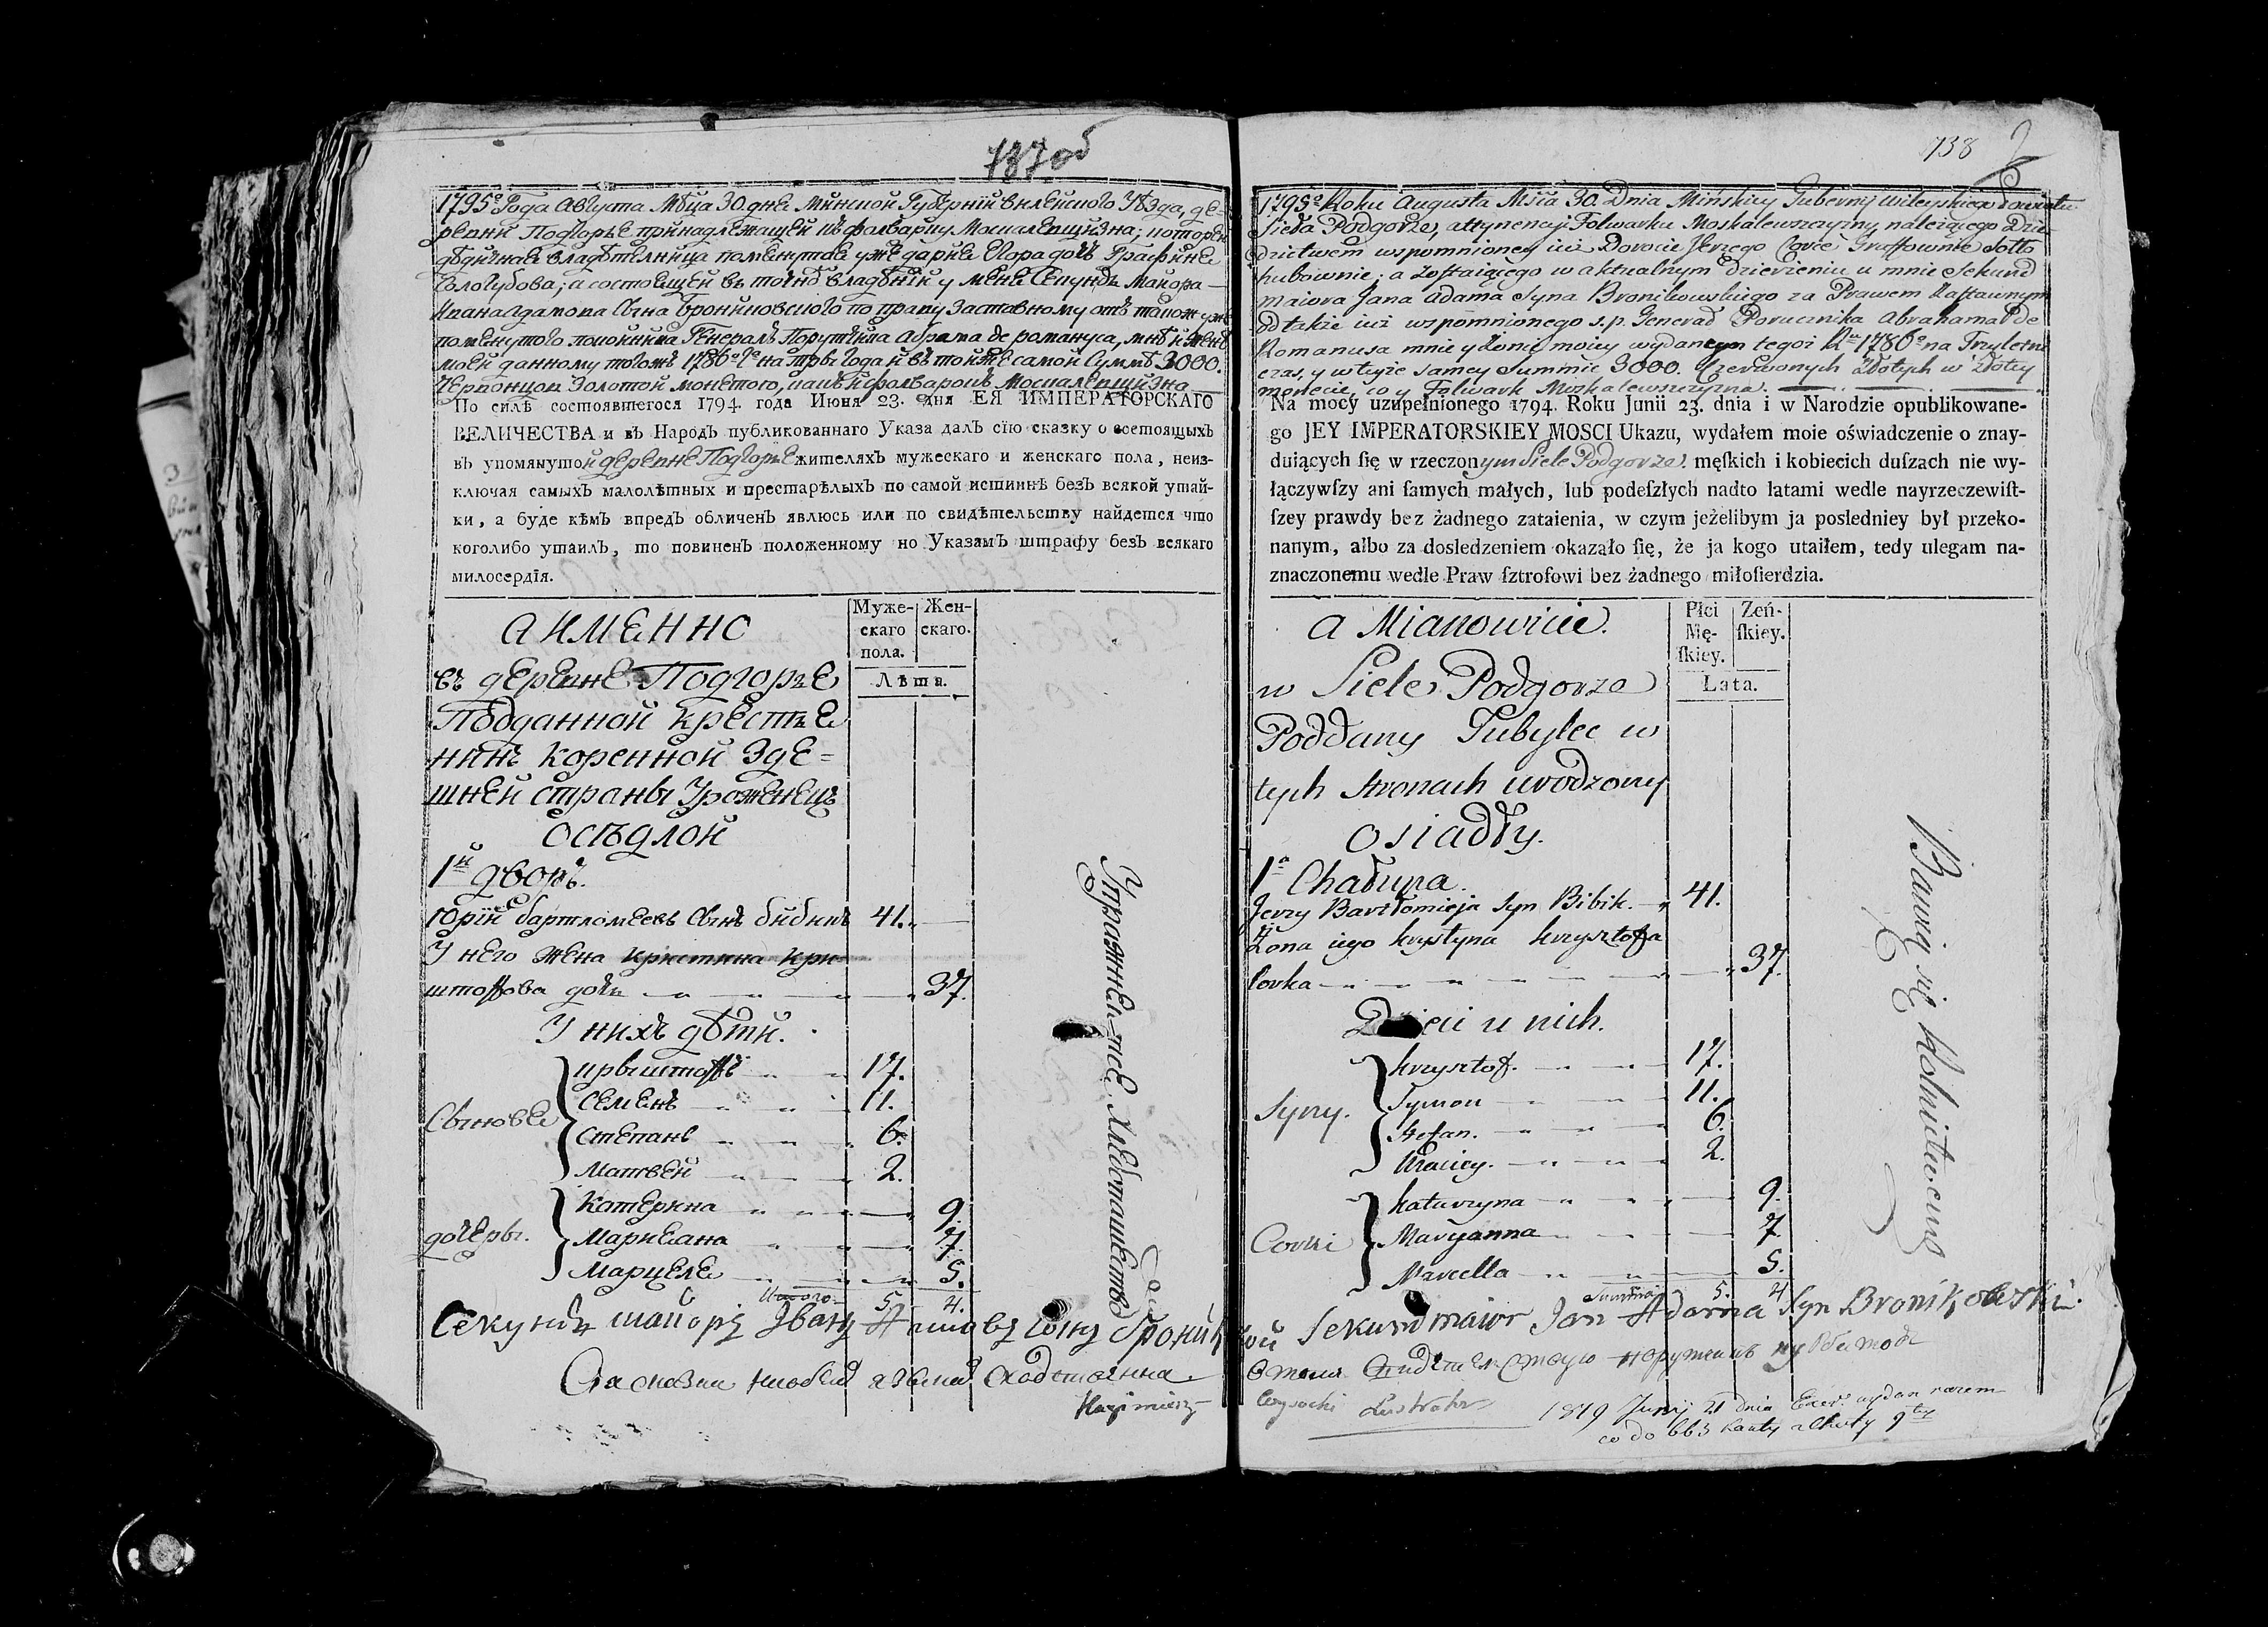 737 об
1795го Года Августа Мѣца 30. дня Минской Губерніи Вилейского Уѣзда, де-
ревни Подгорье принадлежащей къ фольварку Москалевщизна; которой
дѣдичная владѣтелница помянутая уже дарья Егора дочь Графиня
Сологубова; а состоящей въ точнѣ владѣніи у меня Секундъ Майора
Ивана Адамова Сына Брониковского по праву заставному отъ також уже
помянутого покойника Генералъ Порутчика Абрама де романуса, мнѣ и женѣ
моей данному тогожъ 1786го Го на тры Года и въ тойже самой Суммѣ 3000.
Червонцов Золотой монетого, какъ и фольварокъ Москалевщизна
По силѣ состоявшегося 1794. года Июня 23. дня ЕЯ ИМПЕРАТОРСКАГО
ВЕЛИЧЕСТВА и въ Народъ публикованнаго Указа далъ сїю сказку о состоящыхъ
въ упомянутой деревне Подгорье жителяхъ мужескаго и женскаго пола, неиз-
ключая самыхъ малолѣтныхъ и престарѣлыхъ по самой истиннѣ безъ всякой утай-
ки, а буде кѣмъ впредъ обличенъ явлюсь или по свидѣтельству найдется что
коголибо утаилъ, то повиненъ положенному по Указамъ штрафу безъ всякаго
милосердїя.
а имЕнно
Муже-
скаго
пола.
Жен-
скаго.
Лѣта.
въ деревне Подгорье
Подданной крестья
нинъ коренной Зде=
шней страны Уроженецъ
Осѣдлой
1й дворъ.
Юрїй бартломеевъ Сынъ бибикъ 41.
У него жена кристина кри
штоффова дочь 37.
У нихъ дѣти.
Сыновья
крыштоффъ 17.
Семенъ 11.
Степанъ 6.
Матвей 2.
дочеры.
Катерина 9.
Марияана 7.
Марцеля 5.
Итого 5. 4.
Упражняется Хлебопашеством
Секундъ маиоръ Иванъ Адамовъ сынъ Броников
Kazimierz
738
1795o Roku Augusta Msca 30. Dnia Mińskiey Gubernij Wileyskiego Powiatu
Sieła Podgorze, attynencyi Folwarku Moskalewszczyzny, należącego Dzie-
dzictwem wspomnioney iuż Dorocie Jerzego Corce Graffownie Sołło
hubownie; a zostaiącego w aktualnym Dzierżeniu u mnie Sekund
Maiora Jana Adama Syna Bronikowskiego za Prawem Zastawnym
od także iuż wspomnionego s. p. Generał Porucznika Abrahama de
Romanusa mnie y Żonie moiey wydanym tegoż Ru 1786o na Trzyletni
czas, y w teyże samey Summie 3000. Czerwonych Złotych w Złotey
monecie, co y Folwark Moskalewszczyzna.
Na mocy uzupełnionego 1794. Roku Junii 23. dnia i w Narodzie opublikowane-
go JEY IMPERATORSKIEY MOSCI Ukazu, wydałem moie oświadczenie o znay-
duiących ſię w rzeczonym Siele Podgorze. męſkich i kobiecich duſzach nie wy-
łączywſzy ani ſamych małych, lub podeſzłych nadto latami wedle nayrzeczewiſt-
ſzey prawdy bez żadnego zataienia, w czym jeżelibym ja posledniey był przeko-
nanym, albo za dosledzeniem okazało ſię, że ja kogo utaiłem, tedy ulegam na-
znaczonemu wedle Praw ſztrofowi bez żadnego miłoſierdzia.
a Mianowicie.
Płci
Mę-
ſkiey.
Żeń-
ſkiey.
Lata.
w Siele Podgorze
Poddany Tubylec w
tych stronach urodzony
osiadły.
1a Chałupa.
Jerzy Bartłomieja Syn Bibik. 41.
Żona iego Krystyna Krzysztofa
Corka 37.
Dzieci u nich.
Syny.
Krzysztof. 17.
Symon 11.
Stefan. 6.
Maciey. 2.
Corki
Katarzyna 9.
Maryanna 7.
Marcella 5.
Summa 5. 4.
Bawią się Rolnictwem
Sekundmaior Jan Adama Syn Bronikowski.
Lustrator
1819 Junij 21 Dnia